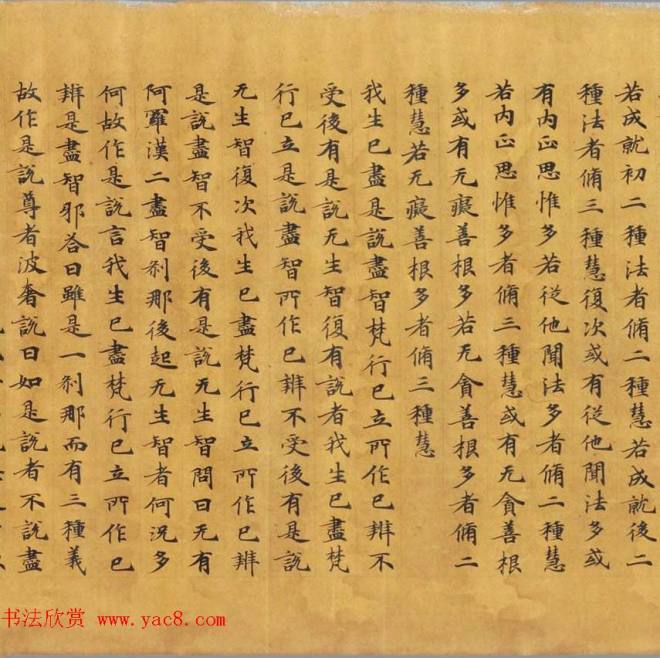 若成就初二種法者脩二種慧若成就後二
種法者脩三種慧復次或有從他聞法多或
有内正思惟多若從他聞法多者脩二種慧
若内正思惟多者脩三種慧或有无貪善根
多或有无癡善根多若无貪善根多者脩二
種慧若无癡善根多者脩三種慧
我生已盡是說盡智梵行已立所作已辨不
受後有是說无生智復有說者我生已盡梵
行已立是說盡智所作已辨不受後有是說
无生智復次我生已盡梵行已立所作已辨
是說盡智不受後有是說无生智問曰无有
阿羅漢二盡智剎那後起无生智者何況多
何故作是說言我生已盡梵行已立所作已
辨是盡智邪荅曰雖是一剎那而有三種義
故作是說尊者波奢說曰如是說者不說盡
书法欣赏 www.yac8.com